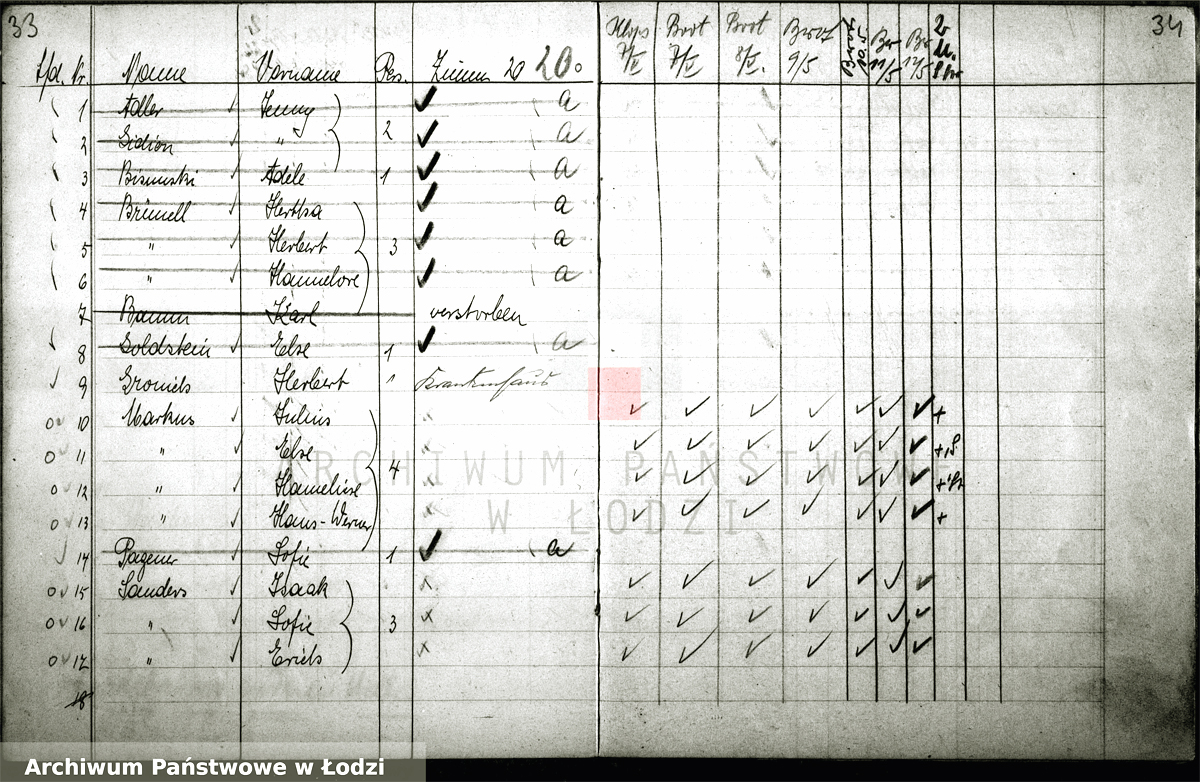 33 34
Lfd. Nr. Name Vorname Pers. Zimm 20 20.
Klops 7/V Brot 7/V Brot 8/V. Brot 9/5 10.5 Br 11/5 Br 12/5
1 Adler Jenny a
2 Gidion " 2 a
3 Adele 1 a
4 Brünell Hertha a
5 " Herbert 3 a
6 " Hannelore a
7 Baum Karl verstorben
8 Goldstein Else 1 a
9 Herbert " Krankenhaus
10 Markus Julius x +
11 " Else x
12 " Hannelise 4 x
13 " Hans-Werner x +
14 Pagener Sofie 1 a
15 Sanders Isaak x
16 " Sofie 3 x
17 " Erich x
18
ARCHIWUM PAŃSTWOWE
W ŁODZI
Archiwum Państwowe w Łodzi